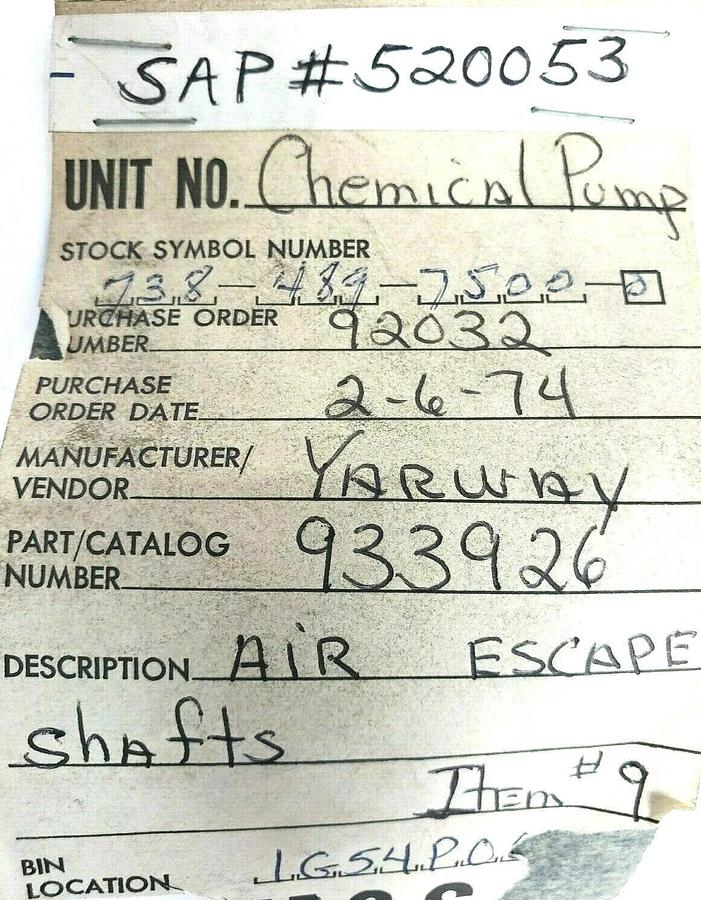 SAP #520053
UNIT NO. Chemical Pump
STOCK SYMBOL NUMBER
738-489-7500-0
URCHASE ORDER
UMBER 92032
PURCHASE
ORDER DATE 2-6-74
MANUFACTURER/
VENDOR YARWAY
PART/CATALOG
NUMBER 933926
DESCRIPTION AIR ESCAPE
shafts
Item #9
BIN
LOCATION 1G54P0